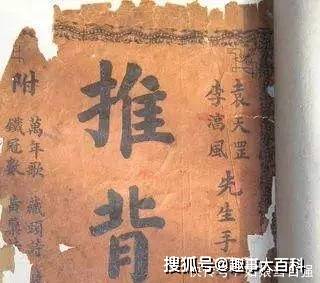 袁天罡
李淳風
先生手
推背
附
萬年歌 藏頭詩
鐵冠數
搜狐号@趣事大百科